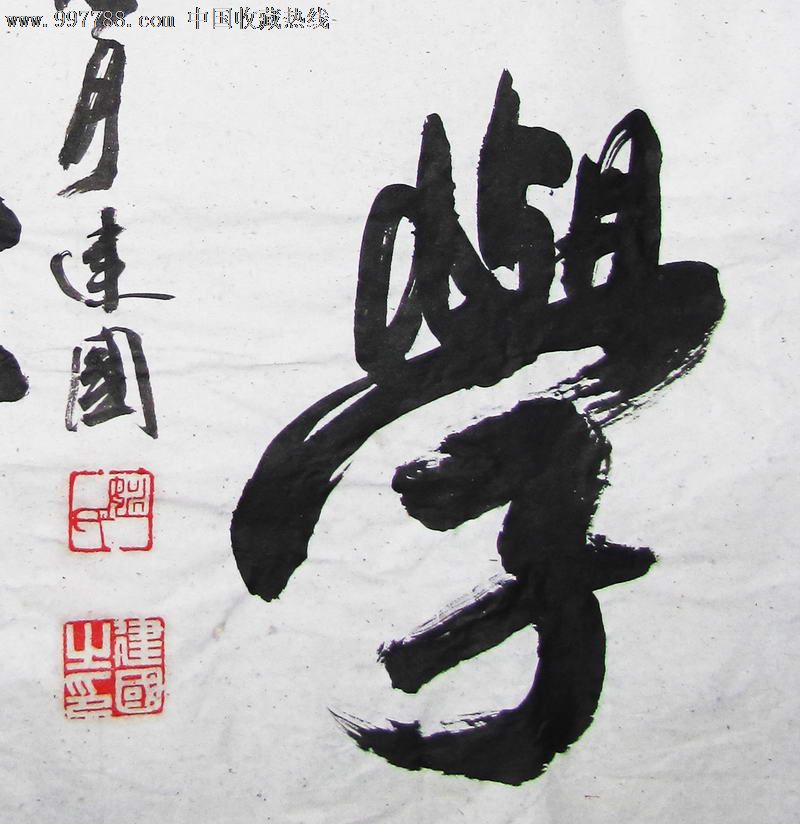 www.997788.com 中国收藏热线
學
月建國
建國之印